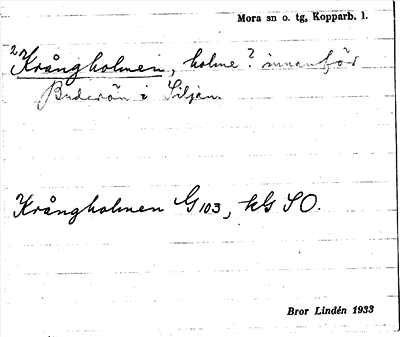 Mora sn o. tg, Kopparb. l.
2 Krångholmen, holme? innanför
Buderön i Siljan.
Krångholmen G 103, kG SO.
Bror Lindén 1933